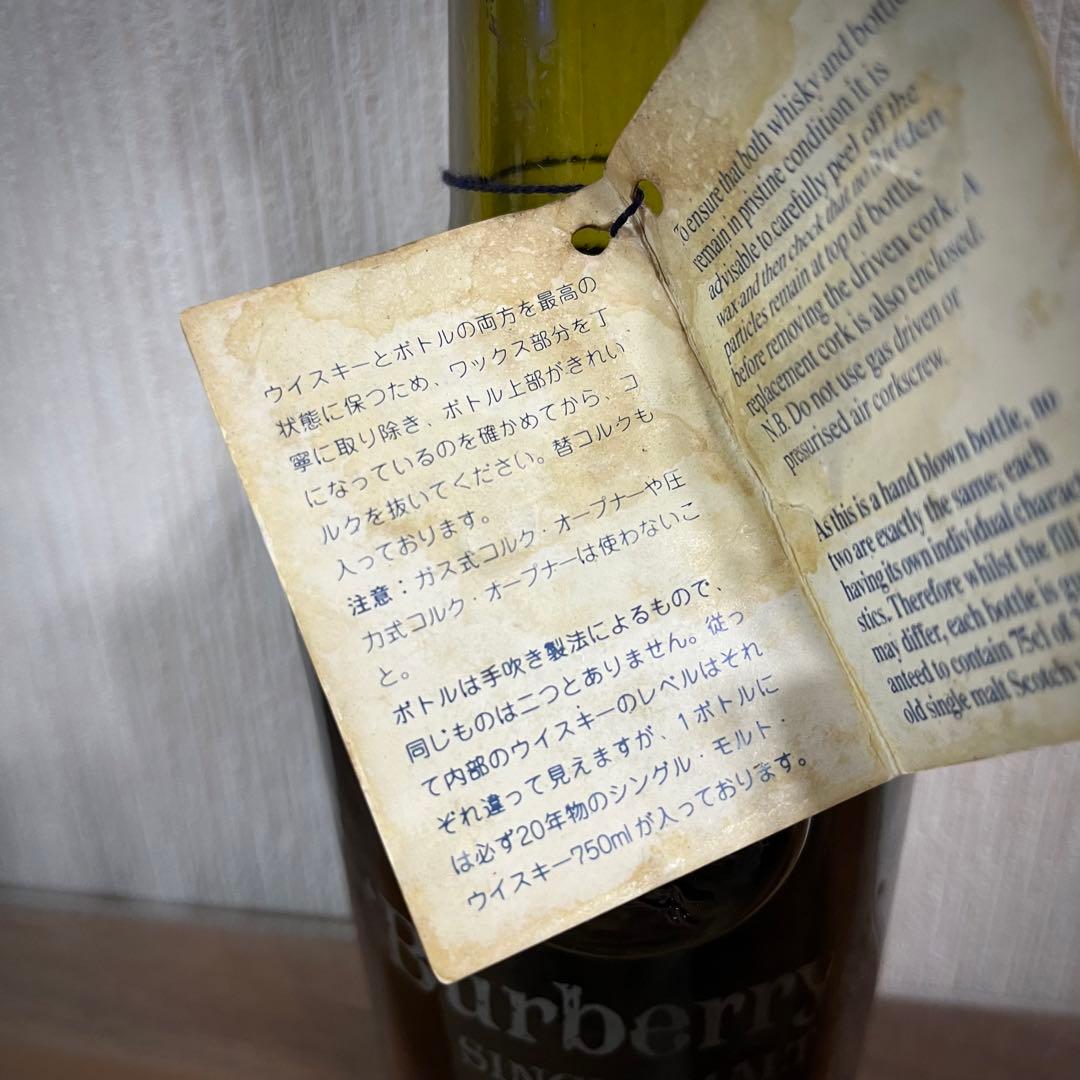 ウイスキーとボトルの両方を最高の
状態に保つため、ワックス部分を丁
寧に取り除き、ボトル上部がきれい
になっているのを確かめてから、コ
ルクを抜いてください。替コルクも
入っております。
注意：ガス式コルク・オープナーや圧
力式コルク・オープナーは使わないこ
と。
ボトルは手吹き製法によるもので、
同じものは二つとありません。従っ
て内部のウイスキーのレベルはそれ
ぞれ違って見えますが、1ボトルに
は必ず20年物のシングル・モルト・
ウイスキー750mlが入っております。
To ensure that both whisky and bottle
remain in pristine condition it is
advisable to carefully peel off the
wax and then check that no wielden
particles remain at top of bottle
before removing the driven cork. A
replacement cork is also enclosed.
N.B. Do not use gas driven or
pressurised air corkscrew.
As this is a hand blown bottle, no
two are exactly the same; each
having its own individual charact
stics. Therefore whilst the fill
may differ, each bottle is gu
anteed to contain 75cl of
old single malt Scotch
Burberry
SINGLE MALT